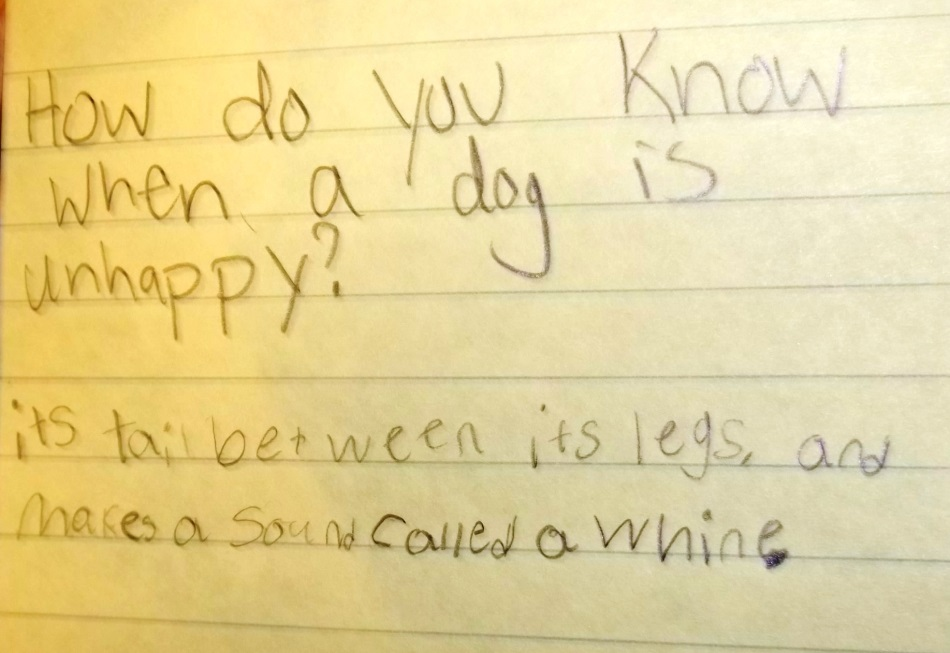 How do you Know
when a dog is
unhappy?
its tail between its legs, and
makes a sound called a whine.